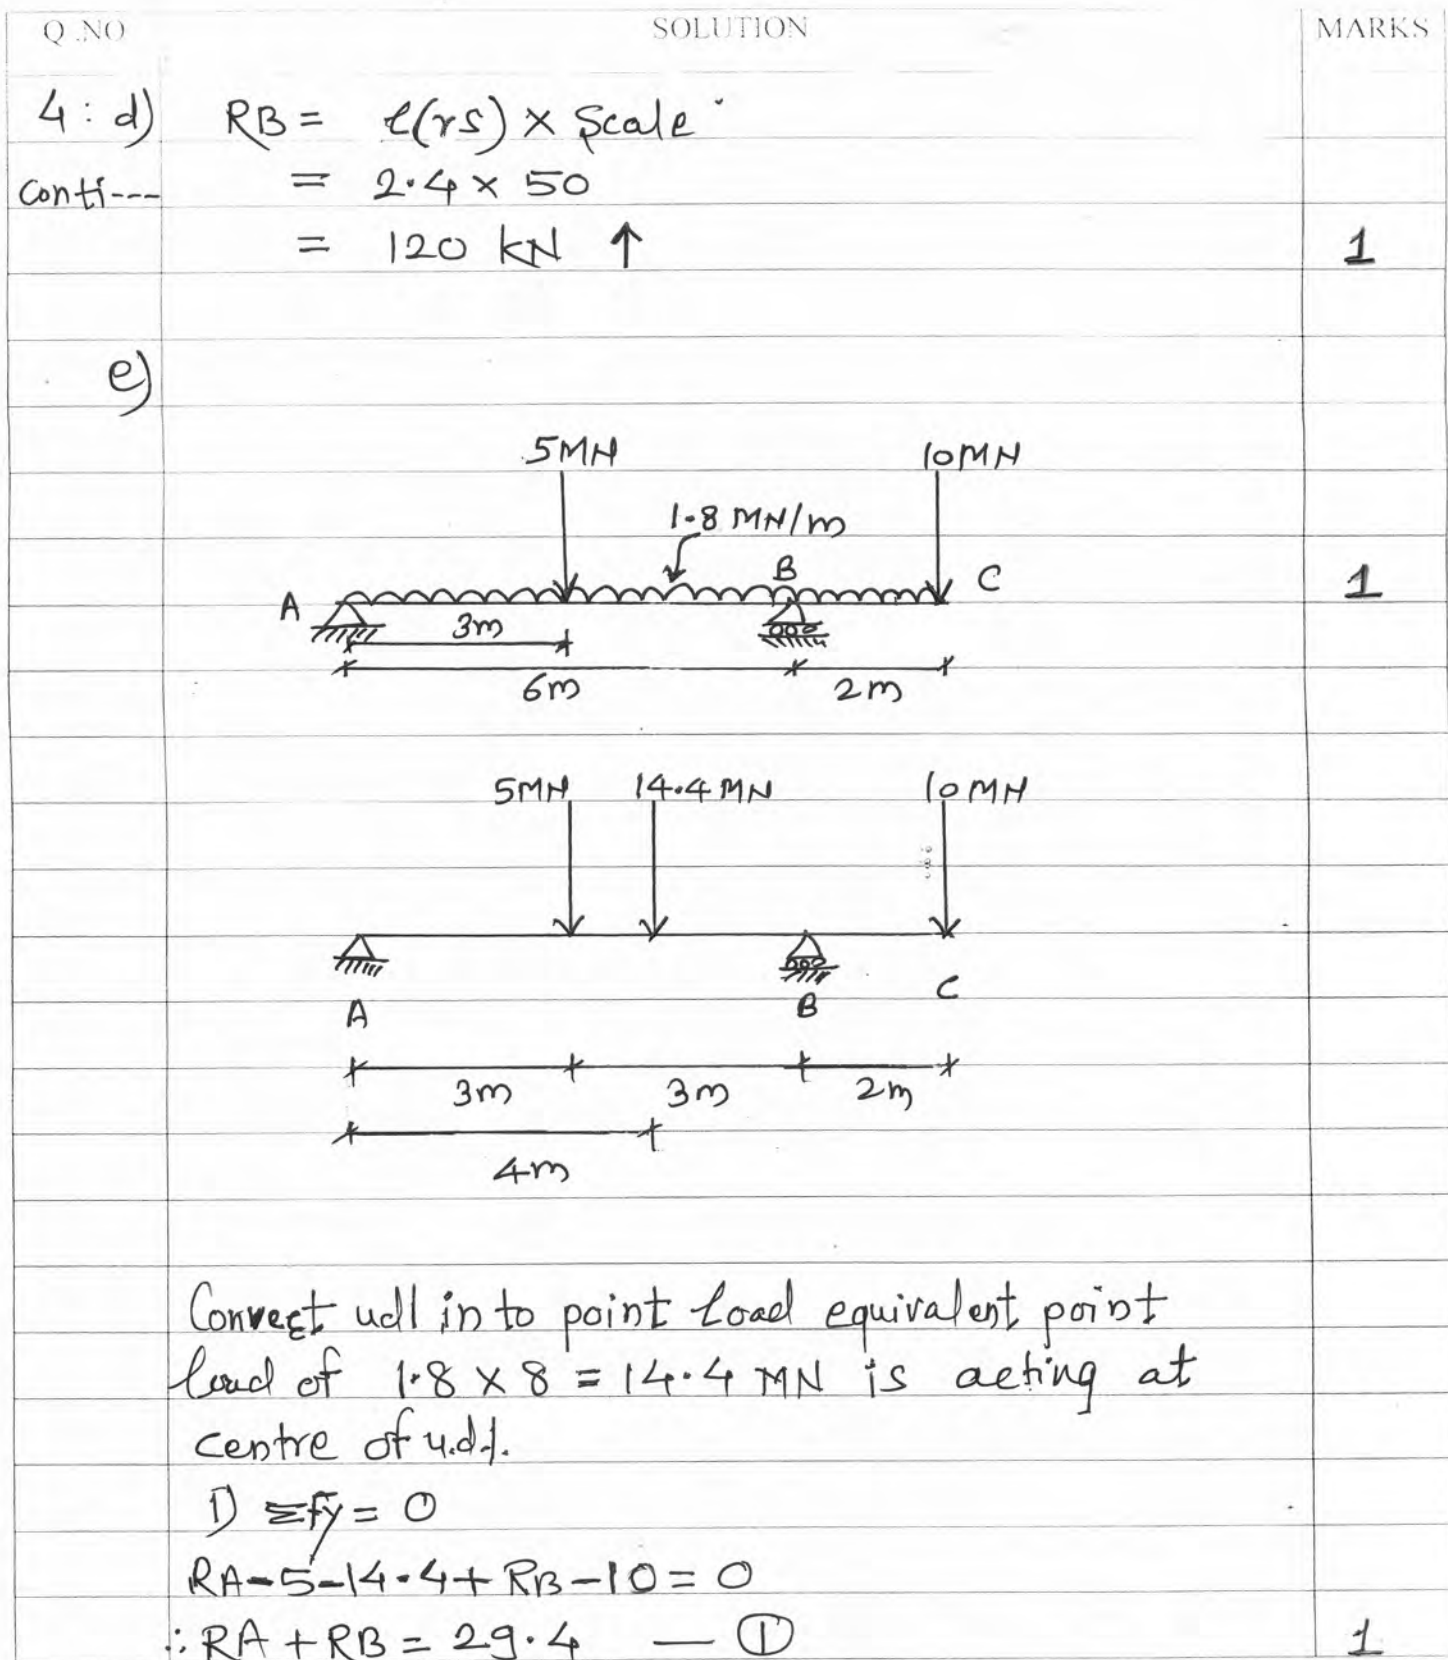 Q.NO SOLUTION MARKS
4: d) RB = l(rs) × Scale
conti--- = 2.4 × 50
= 120 kN ↑ 1
e)
5MN 10MN
1.8 MN/m
A B C 1
3m
6m 2m
5MN 14.4 MN 10MN
A B C
3m 3m 2m
4m
Convert udl in to point load equivalent point
load of 1.8 × 8 = 14.4 MN is acting at
centre of u.d.l.
1) Σfy = 0
RA-5-14.4+RB-10=0
∴ RA + RB = 29.4 — ① 1